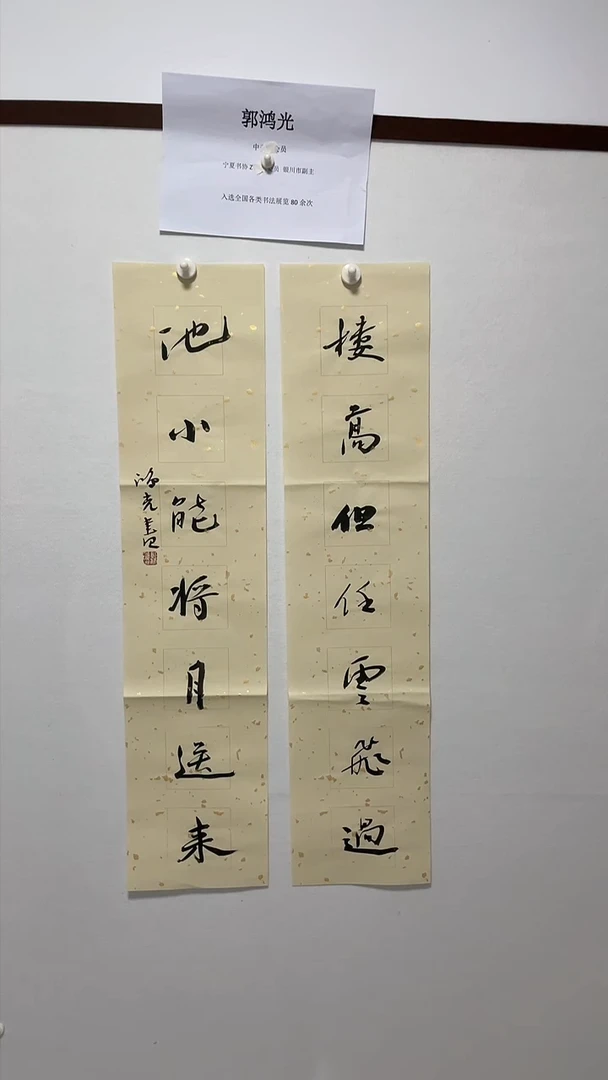 郭鸿光
中 会员
宁夏书协 员 银川市副主
入选全国各类书法展览 80 余次
楼高但任雲飛過
池小能将月送来
鴻光書